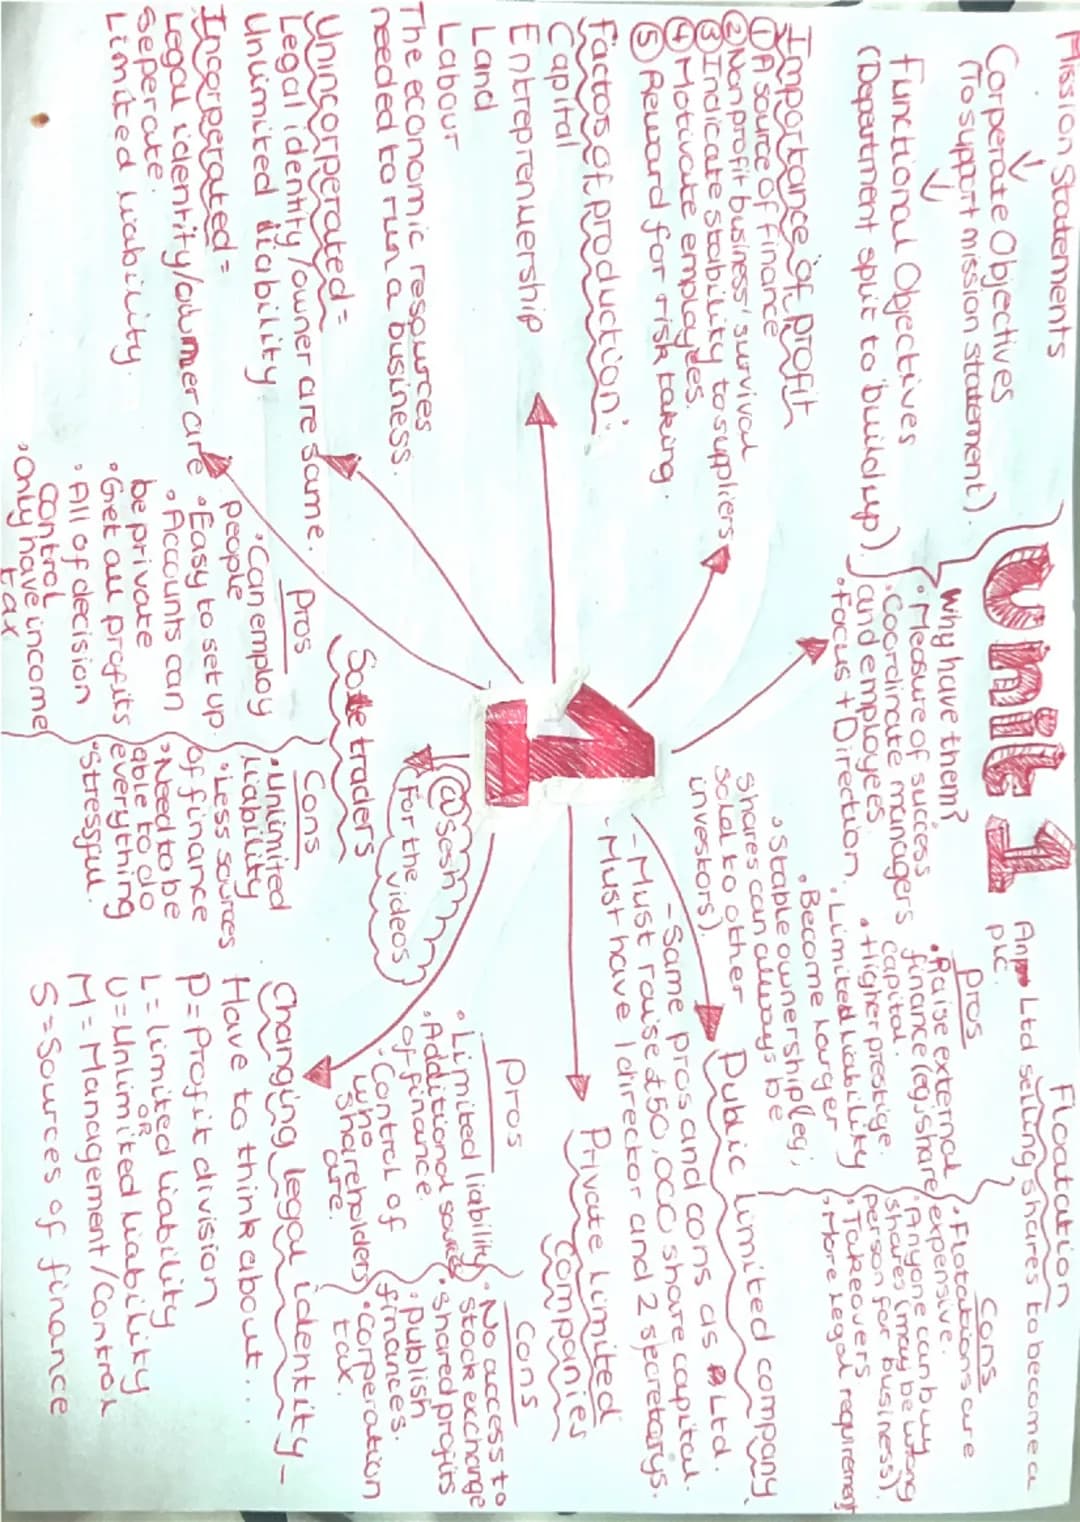 Unit 1
Mission Statements
Corperate Objectives
(To support mission statement).
Functional Objectives
(Department split to build up)
Why have them?
• Measure of success
• Coordinate managers
and employees
• Focus + Direction.
Importance of profit
① A source of finance
② Non profit business' survival
③ Indicate stability to suppliers
④ Motivate employees.
⑤ Reward for risk taking.
Factors of production:
Capital
Entreprenuership
Land
Labour
The economic resources
needed to run a business.
Unincorperated =
Legal identity/owner are same.
Unlimited liability
Incorperated =
Legal identity/owner are
seperate.
Limited liability.
Sole traders
Pros
• Can employ
people
• Easy to set up
• Accounts can
be private
• Get all profits
• All of decision
control
• Only have income
tax
Cons
• Unlimited
liability
• Less sources
of finance
• Need to be
able to do
everything
• Stressful.
@Sesh
For the
videos
1
Floatation
An Ltd selling shares to become a
plc.
Pros
• Raise external
finance (eg, share
capital.
• Higher prestige
• Limited liability
• Become larger
• Stable ownership (eg,
shares can always be
sold to other
investors).
Cons
• Flotations are
expensive.
• Anyone can buy
shares (may be wrong
person for business)
• Takeovers
• More legal requirement
Public limited company
- Same pros and cons as Ltd.
- Must raise £50,000 share capital.
- Must have 1 director and 2 secretarys.
Private limited
companies
Pros
• Limited liability
• Additional sources
of finance.
• Control of
who
shareholders
are.
Cons
• No access to
stock exchange
• Shared profits
• Publish
finances.
• Corperation
tax.
Changing legal identity -
Have to think about...
P = Profit division
L = Limited liability
OR
U = Unlimited liability
M = Management/Control
S = Sources of finance